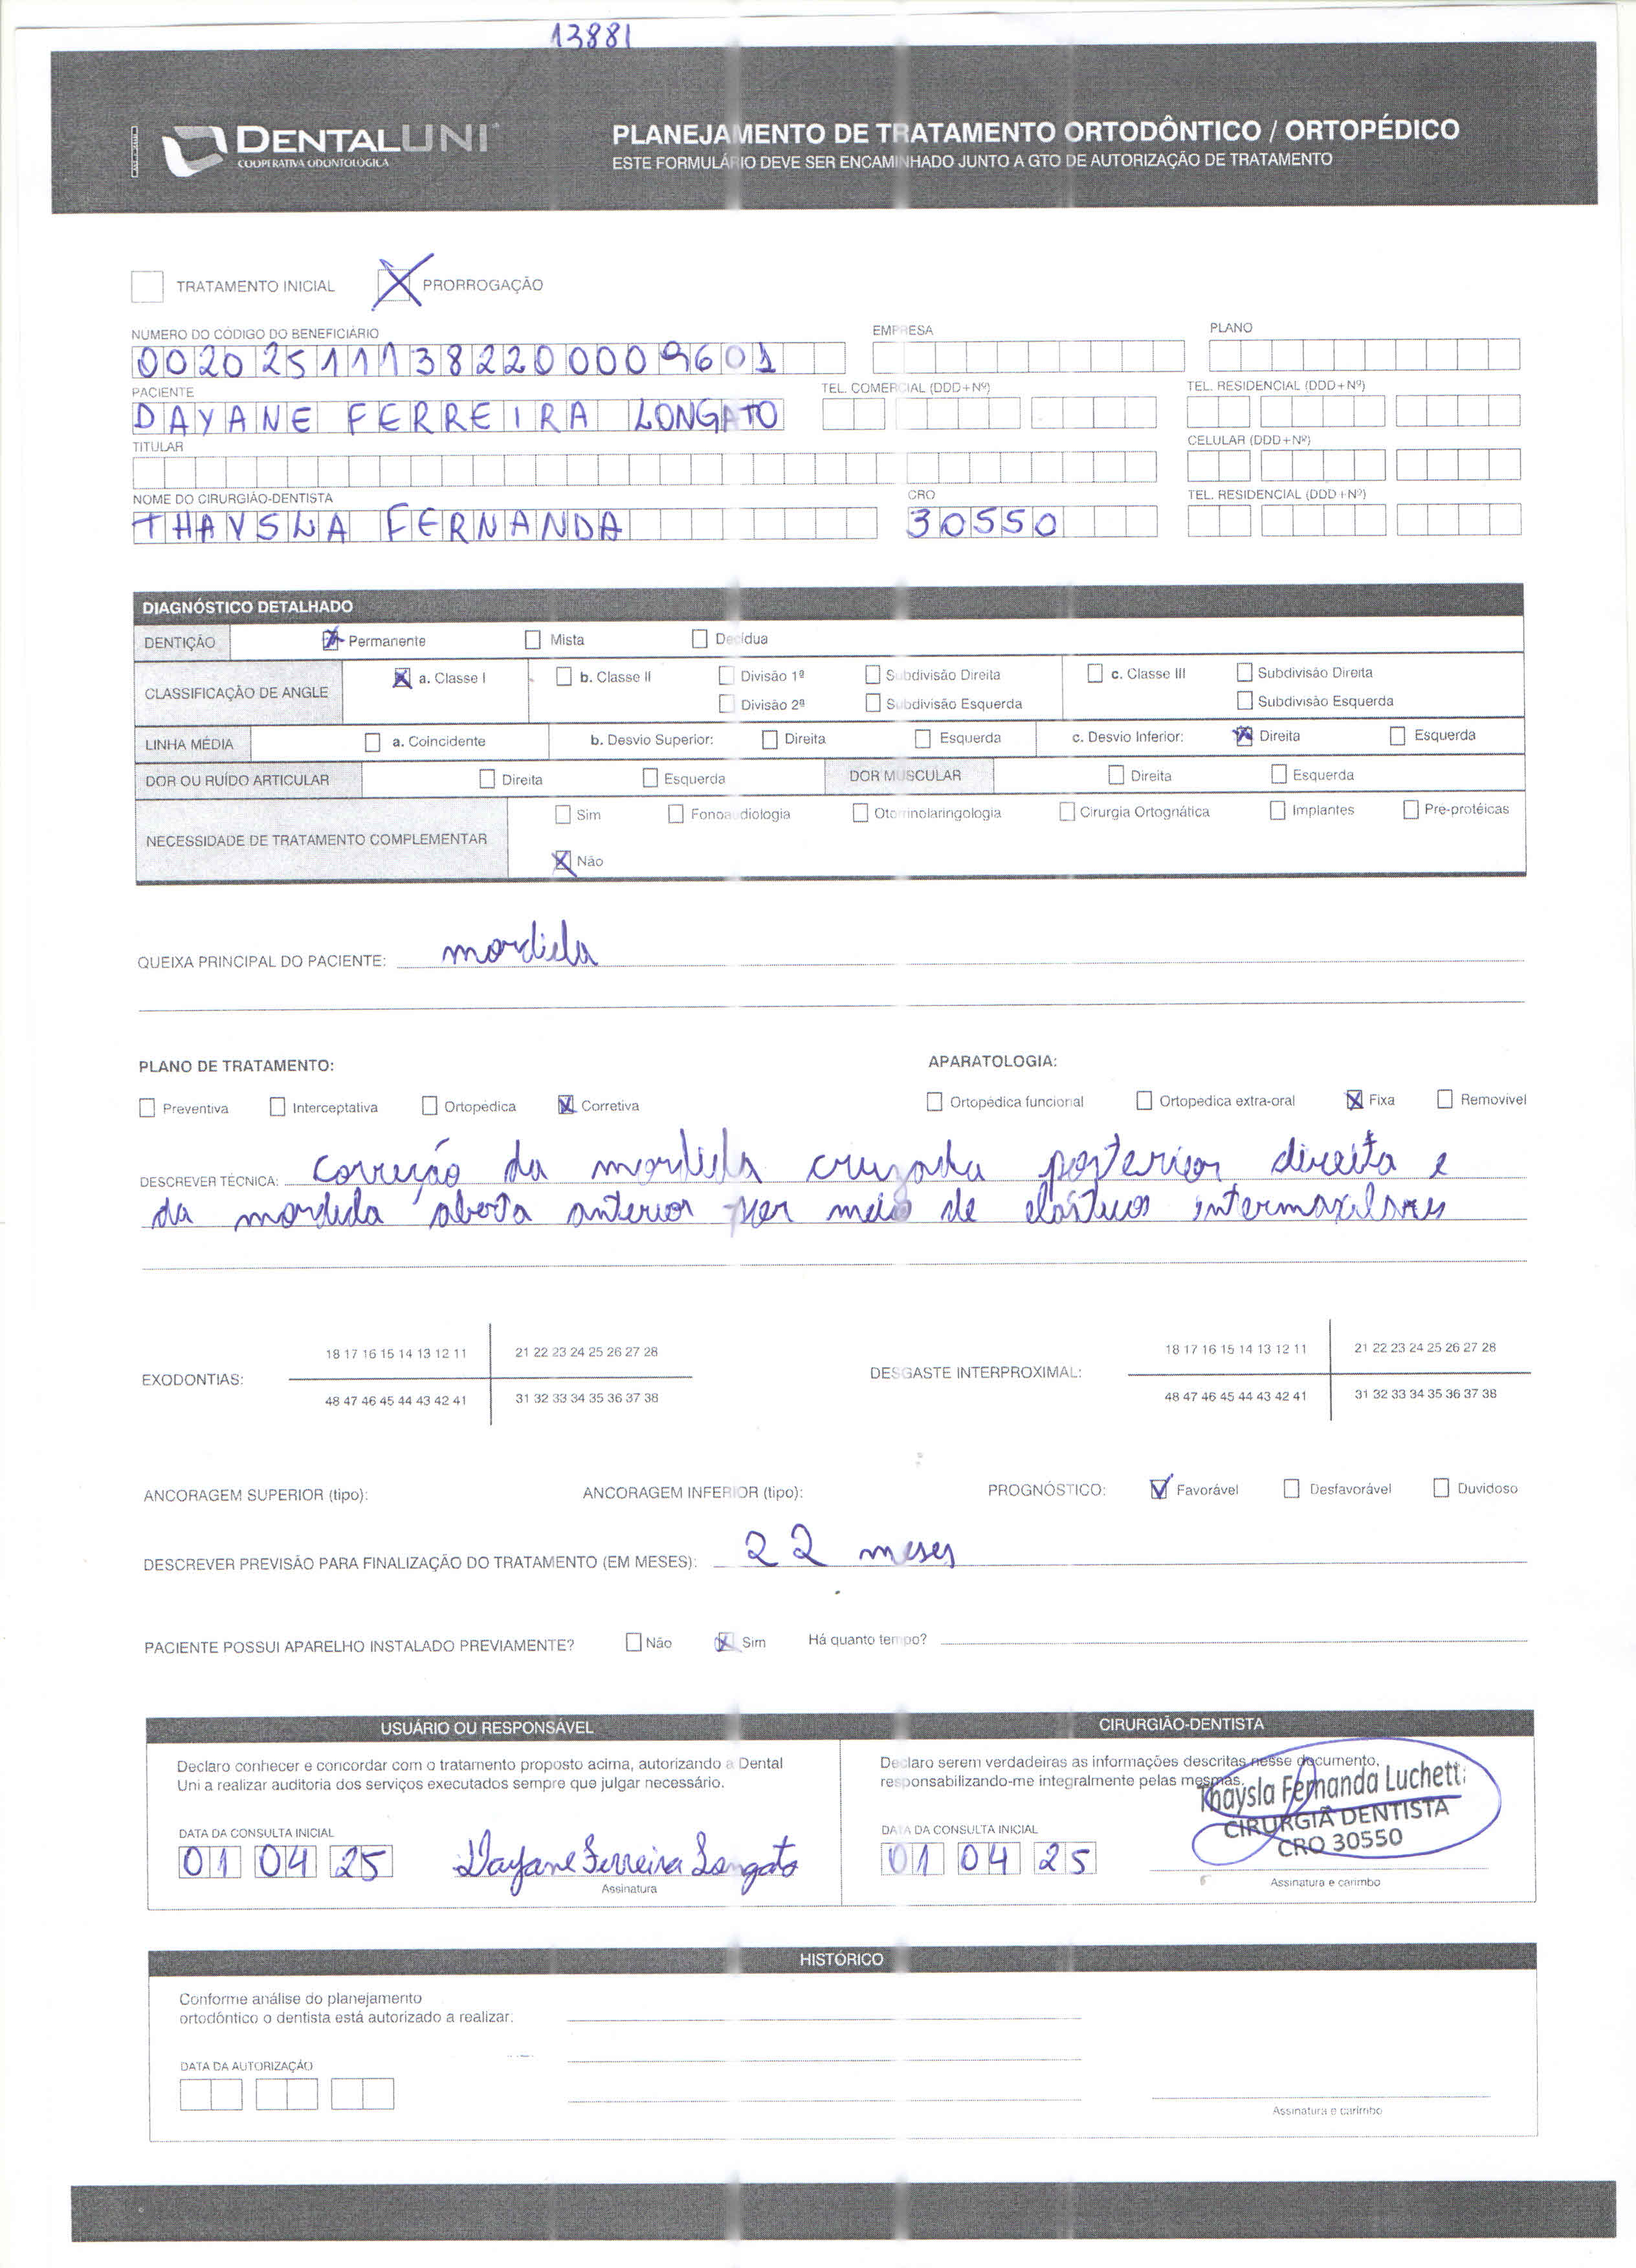 13881
DENTALUNI
COOPERATIVA ODONTOLÓGICA
PLANEJAMENTO DE TRATAMENTO ORTODÔNTICO / ORTOPÉDICO
ESTE FORMULÁRIO DEVE SER ENCAMINHADO JUNTO A GTO DE AUTORIZAÇÃO DE TRATAMENTO
TRATAMENTO INICIAL X PRORROGAÇÃO
NUMERO DO CÓDIGO DO BENEFICIÁRIO EMPRESA PLANO
00202511138220009601
PACIENTE TEL. COMERCIAL (DDD+Nº) TEL. RESIDENCIAL (DDD+Nº)
DAYANE FERREIRA LONGATO
TITULAR CELULAR (DDD+Nº)
NOME DO CIRURGIÃO-DENTISTA CRO TEL. RESIDENCIAL (DDD+Nº)
THAYSLA FERNANDA 30550
DIAGNÓSTICO DETALHADO
DENTIÇÃO X Permanente Mista Decídua
CLASSIFICAÇÃO DE ANGLE X a. Classe I b. Classe II Divisão 1ª Subdivisão Direita c. Classe III Subdivisão Direita
Divisão 2ª Subdivisão Esquerda Subdivisão Esquerda
LINHA MÉDIA a. Coincidente b. Desvio Superior: Direita Esquerda c. Desvio Inferior: X Direita Esquerda
DOR OU RUÍDO ARTICULAR Direita Esquerda DOR MUSCULAR Direita Esquerda
NECESSIDADE DE TRATAMENTO COMPLEMENTAR Sim Fonoaudiologia Otorrinolaringologia Cirurgia Ortognática Implantes Pre-protéicas
X Não
QUEIXA PRINCIPAL DO PACIENTE: mordida
PLANO DE TRATAMENTO: APARATOLOGIA:
Preventiva Interceptativa Ortopédica X Corretiva Ortopédica funcional Ortopedica extra-oral X Fixa Removível
DESCREVER TÉCNICA: Correção da mordida cruzada posterior direita e
da mordida aberta anterior por meio de elásticos intermaxilares
18 17 16 15 14 13 12 11 21 22 23 24 25 26 27 28 18 17 16 15 14 13 12 11 21 22 23 24 25 26 27 28
EXODONTIAS: DESGASTE INTERPROXIMAL:
48 47 46 45 44 43 42 41 31 32 33 34 35 36 37 38 48 47 46 45 44 43 42 41 31 32 33 34 35 36 37 38
ANCORAGEM SUPERIOR (tipo): ANCORAGEM INFERIOR (tipo): PROGNÓSTICO: Favorável Desfavorável Duvidoso
DESCREVER PREVISÃO PARA FINALIZAÇÃO DO TRATAMENTO (EM MESES): 22 meses
PACIENTE POSSUI APARELHO INSTALADO PREVIAMENTE? Não X Sim Há quanto tempo?
USUÁRIO OU RESPONSÁVEL CIRURGIÃO-DENTISTA
Declaro conhecer e concordar com o tratamento proposto acima, autorizando a Dental
Uni a realizar auditoria dos serviços executados sempre que julgar necessário.
Declaro serem verdadeiras as informações descritas nesse documento,
responsabilizando-me integralmente pelas mesmas.
Thaysla Fernanda Luchetti
CIRURGIÃ DENTISTA
CRO 30550
DATA DA CONSULTA INICIAL DATA DA CONSULTA INICIAL
01 04 25 Dayane Ferreira Longato 01 04 25
Assinatura Assinatura e carimbo
HISTÓRICO
Conforme análise do planejamento
ortodôntico o dentista está autorizado a realizar:
DATA DA AUTORIZAÇÃO
Assinatura e carimbo